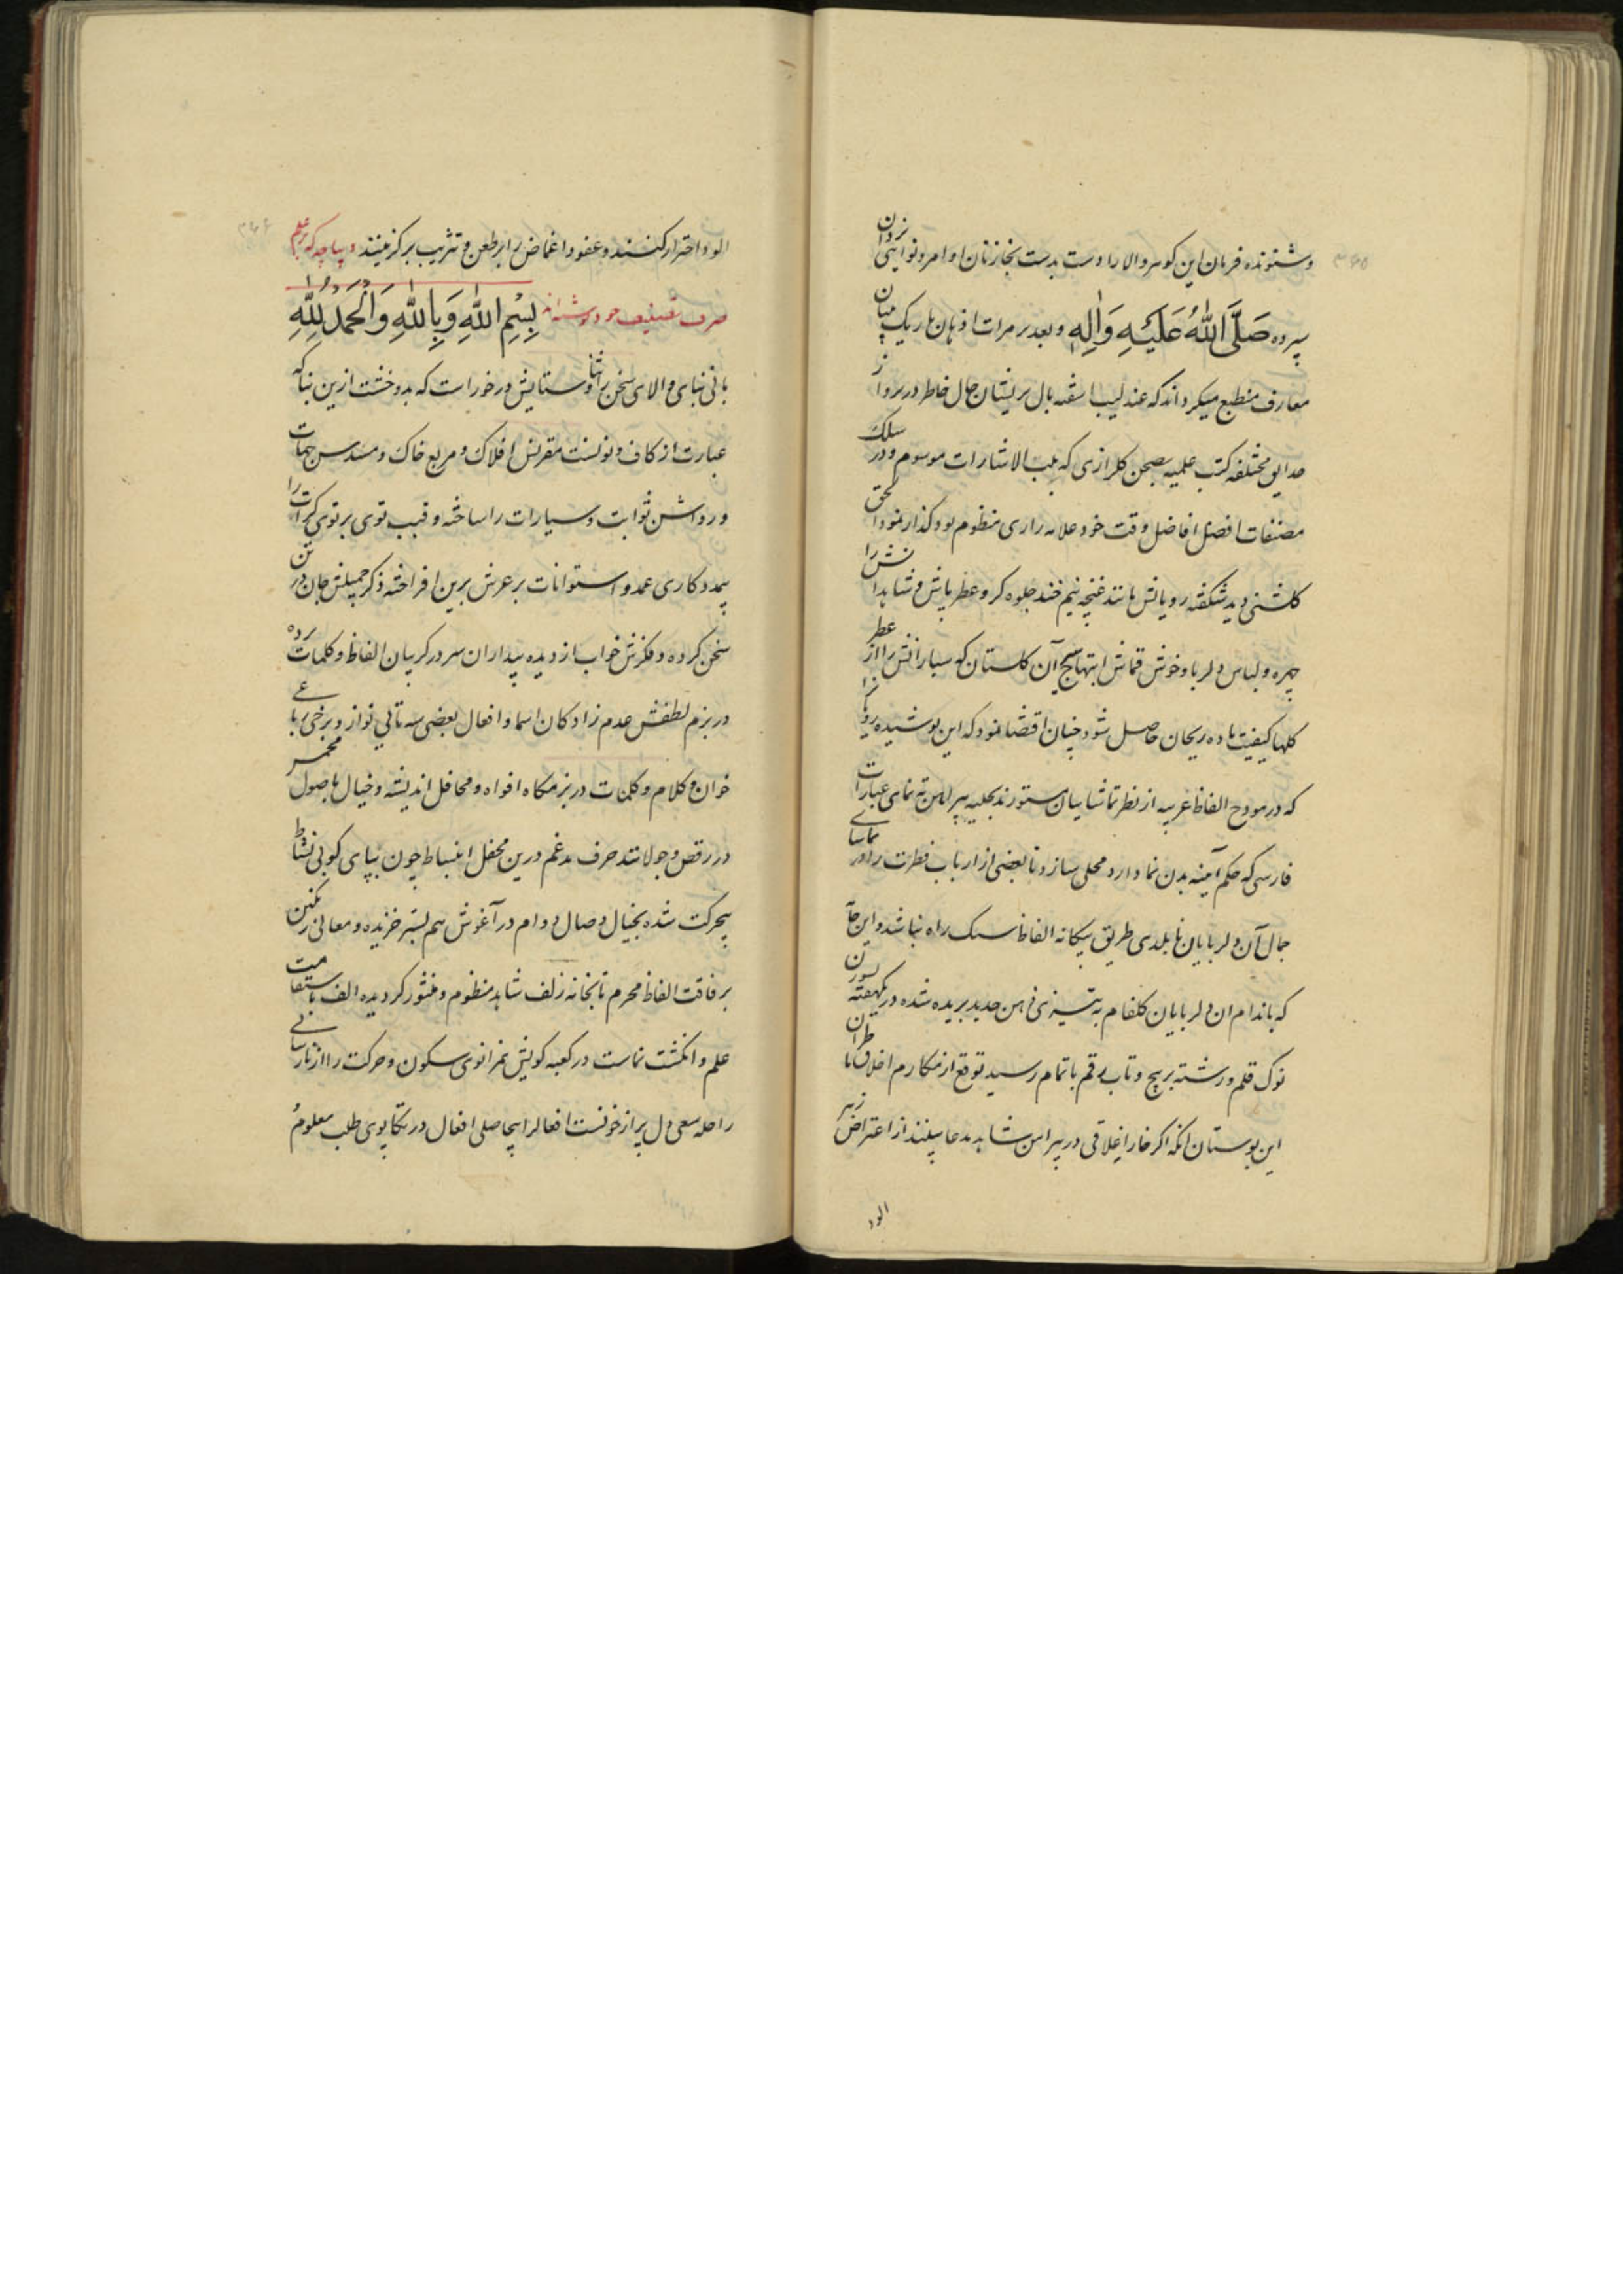 وشنونده فرمان این کوهر والا را دست بدست بخازنان اوامر ونواهی یزدان
سپرده صَلَّی اللهُ عَلَیهِ وَاٰلِهٖ وبعد بر مرات اذهان باریک بینان
معارف منطبع میکرداند که عندلیب اشفته بال پریشان حال خاطر در پرواز
حدایق مختلفه کتب علمیه بصحن کلزاری که بلب الاشارات موسوم ودر سلک
مصنفات افضل افاضل وقت خود علامه رازی منظوم بود کذار نمود الحق
کلشنی دید شکفته رویانش مانند غنچه نیم خند جلوه کر وعطر پاش وشاهدانش را
چهره ولباس دلربا وخوش قماش ابتهاج آن کلستان که سیارانش را از عطر
کلها کیفیت باده ریحان حاصل شود چنان اقتضا نمود که این پوشیده رویانرا
که در هودج الفاظ عربیه از نظر تماشاییان مستورند بحلیه پیراهن ته نمای عبارات
فارسی که حکم آمینه بدن نما دارد محلی سازد تا بعضی از ارباب فطرت را در تماشای
جمال آن دلربایان نابلدی طریق بیکانه الفاظ سنک راه نباشد واین
که باندام ان دلربایان کلفام به تیزی ذهن حدید بریده شده در یکهفته
نوک قلم ورشته پر پیچ وتاب رقم باتمام رسید توقع از مکارم اخلاق
این بوستان آنکه اکر خار اغلاقی در پیراهن شاهد مدعا بینند از اعتراض
الود
الود احتراز کنند وعفو واغماض را بر طعن وتثریب برکزینند دیباچه که بر علم
صرف تصنیف خود نوشته اند بِسْمِ اللهِ وَبِاللهِ وَالْحَمْدُ لِلّٰهِ
بانی بنای والای سخن را ثنا وستایش در خور است که بدو خشت ازین بنا که
عبارت از کاف ونونست مقرنس افلاک ومربع خاک ومسدس جهات
ورواشن ثوابت وسیارات را ساخته وقبب توی بر توی کرات را
بیمددکاری عمد واستوانات بر عرش برین افراخته ذکر جمیلش جان در تن
سخن کرده وفکرش خواب از دیده بیداران سر در کریبان الفاظ وکلمات برده
در بزم لطفش عدم زادکان اسما وافعال بعضی سه تایی نواز وبرخی رباعی
خوان وکلام وکلمات در بزمکاه افواه ومحافل اندیشه وخیال باصول مخمس
در رقص وجولانند حرف مدغم درین محفل انبساط چون بپای کوبی نشاط
بیحرکت شده بخیال وصال دوام در آغوش هم بستر خزیده ومعانی رنکین
برفاقت الفاظ محرم تابخانه زلف شاهد منظوم ومنثور کردیده الف باستقامت
علم وانکشت نماست در کعبه کویش همزانوی سکون وحرکت را از نارسایی
راحله سعی دل پر از خونست افعالرا بیحاصلی افعال در تکاپوی طلب معلوم